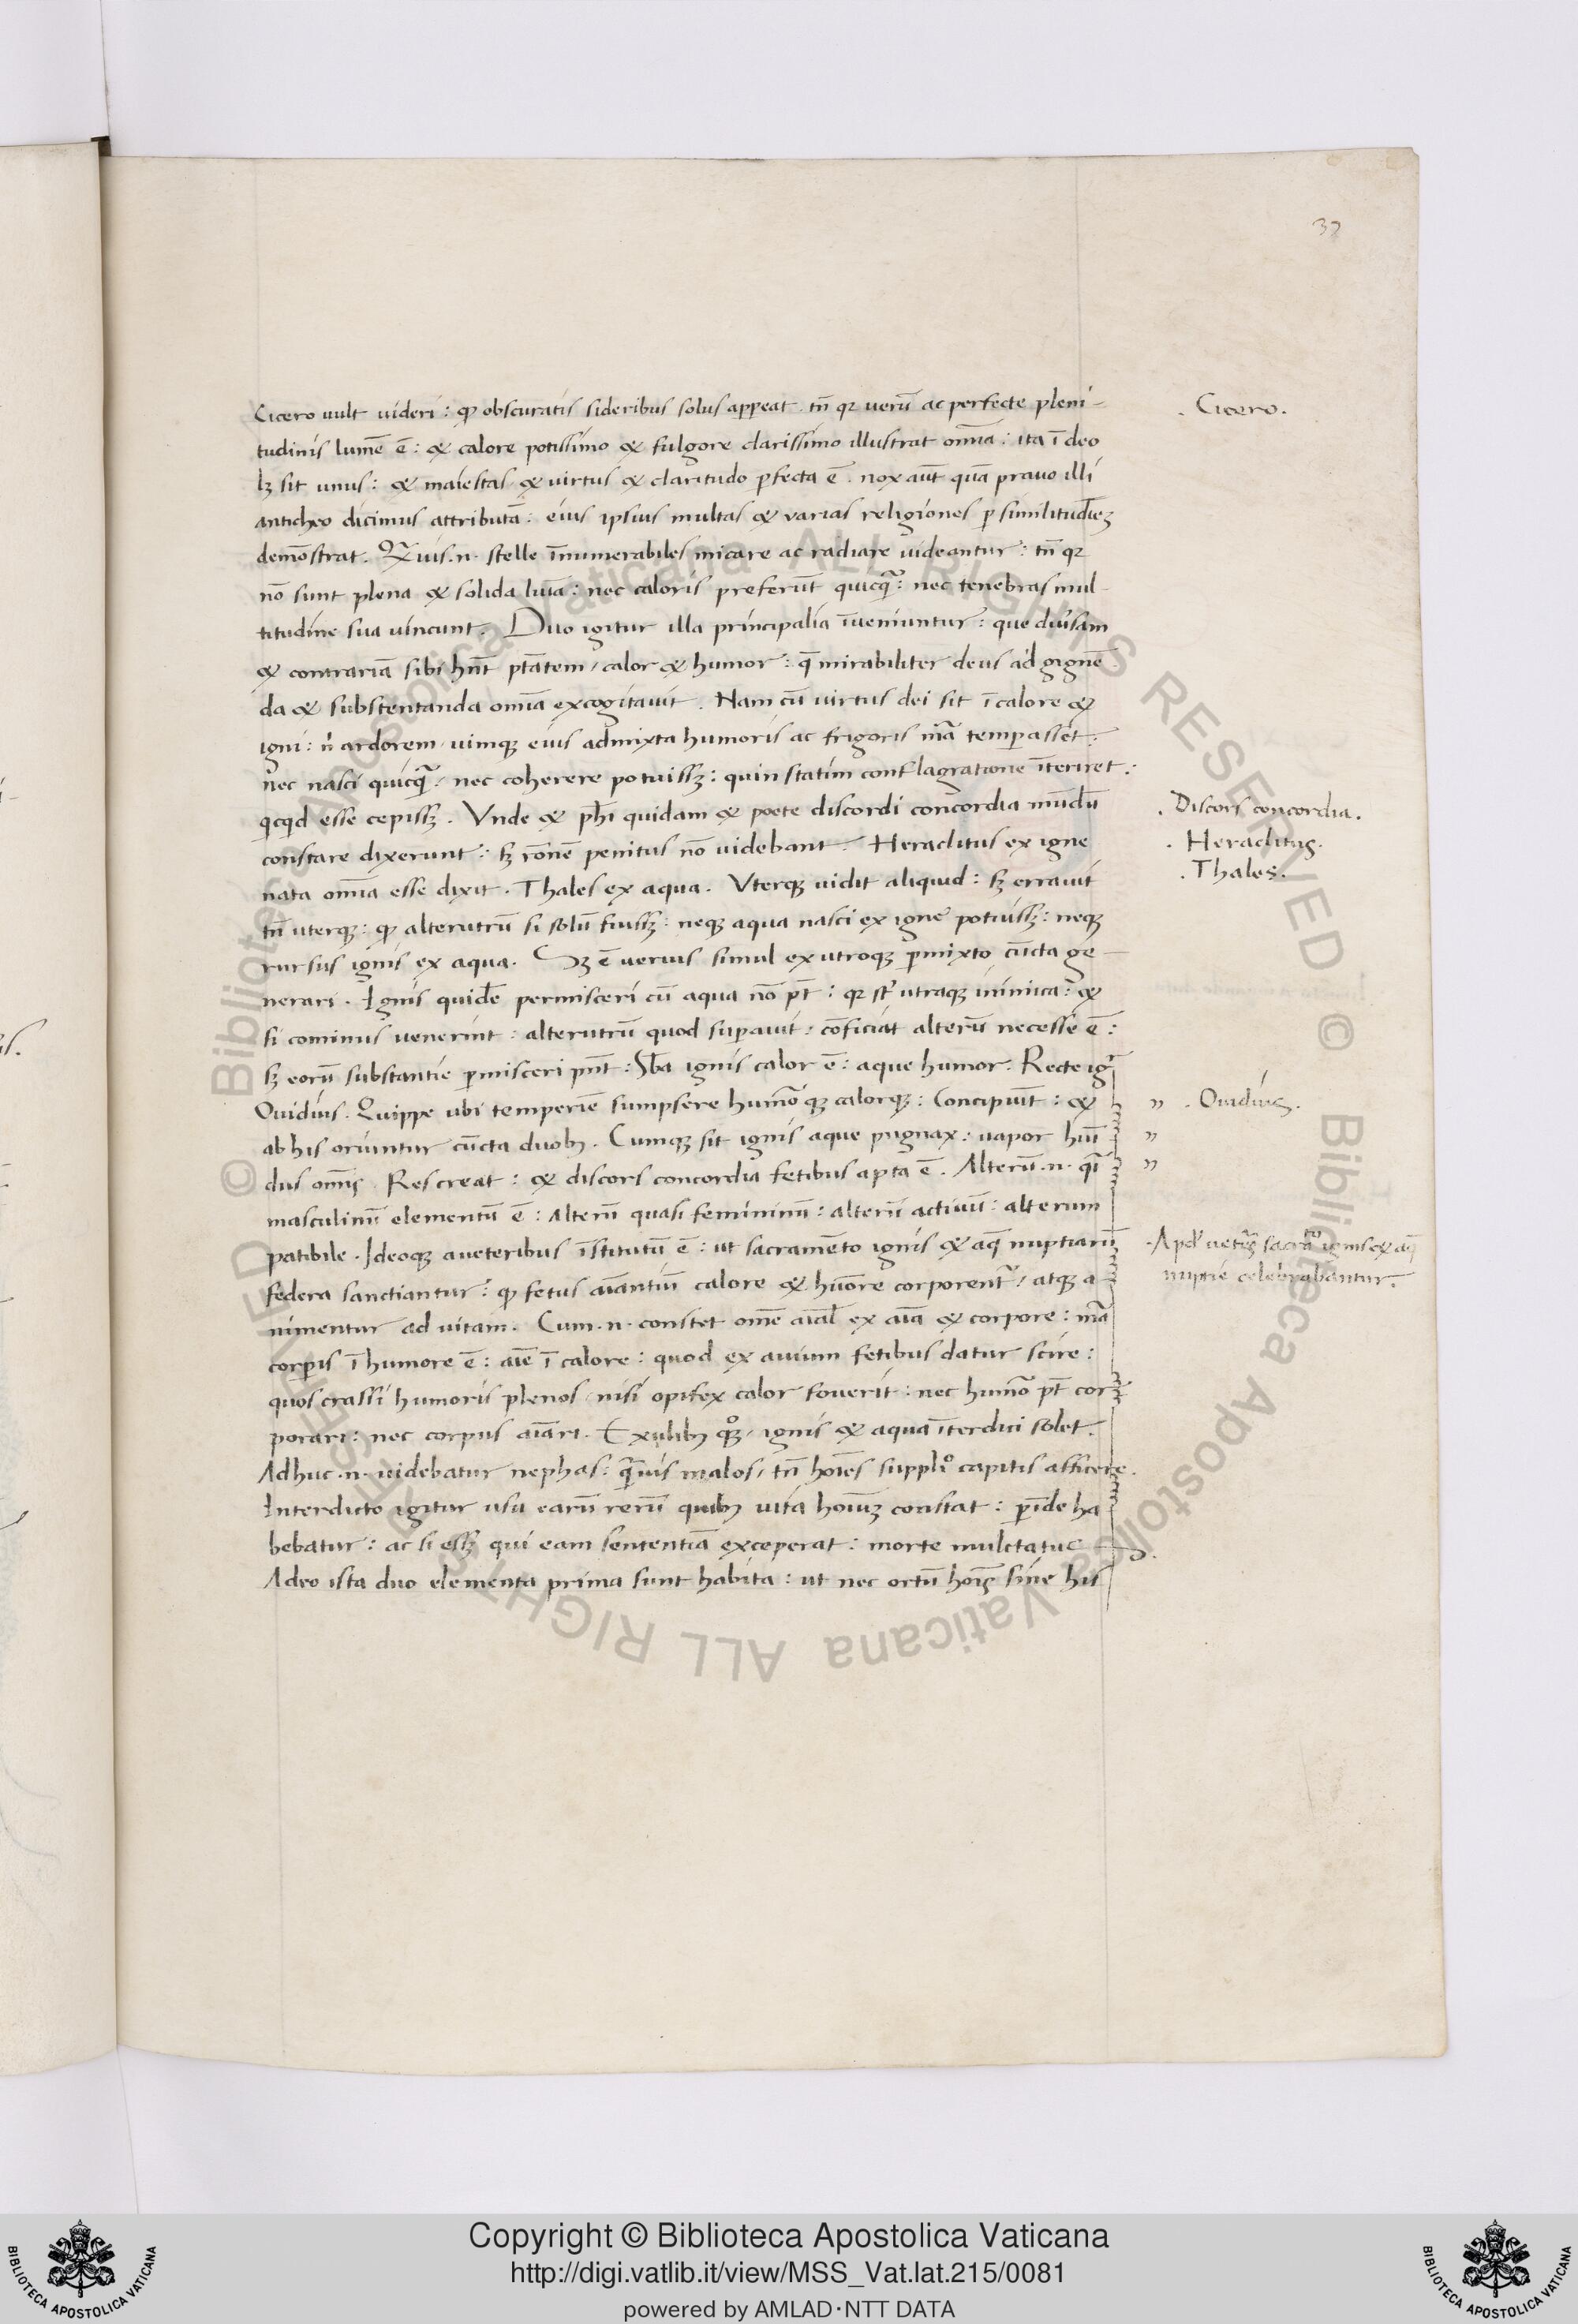 37
Cicero vult videri: qď obscuratis sideribus solus appeat. tn̄ qꝛ verū ac perfecte pleni-
tudinis lumē ē: & calore potissimo & fulgore clarissimo illustrat om̄ia: ita ī deo
lꝫ sit unus: & maiestas & virtus & claritudo ꝑfecta ē. nox aūt quā pravo illi
anticheo dicimus attributā: eius ipsius multas & varias religiones ꝑ similitudīeꝫ
demōstrat. Qᷓvis .n. stelle īnumerabiles micare ac radiare videantur: tn̄ qꝛ
nō sunt plena & solida luīa: nec caloris preferūt quicqᷓ: nec tenebras mul-
titudine sua vincunt. Duo igitur illa principalia īveniuntur: que divisam
& contrariā sibi hn̄t ptātem, calor & humor: q̄ mirabiliter deus ad gignē
da & substentanda om̄ia excogitavit. Nam cū virtus dei sit ī calore &
igni: nͥ ardorem, vimqꝫ eius admixta humoris ac frigoris mᷓa temꝑasset:
nec nasci quicqᷓ, nec coherere potuissꝫ: quin statim conflagratione īteriret:
qͥcqͥd esse cepissꝫ. Vnde & phī quidam & poete discordi concordia mūdū
constare dixerunt: sꝫ rōnē penitus nō videbant. Heraclitus ex igne
nata om̄ia esse dixit. Thales ex aqua. Vterqꝫ vidit aliquid: sꝫ erravit
tn̄ uterqꝫ: qď alterutrū si solū fuissꝫ: neqꝫ aqua nasci ex igne potuissꝫ: neqꝫ
rursus ignis ex aqua. Sꝫ ē verius simul ex utroqꝫ ꝑmixto cūcta ge-
nerari. Ignis quidē permisceri cū aqua nō pt̄: qꝛ sᵗ utraqꝫ inimica: &
si cominus venerint: alterutrū quod suꝑavit: cōficiat alterū necesse ē:
sꝫ eorū substantie ꝑmisceri pn̄t: Sb̄a ignis calor ē: aque humor. Recte igᷓ
Ovidius. Quippe ubi temperiē sumpsere humōqꝫ calorqꝫ: Concipiūt: &
ab his oriuntur cūcta duobꝫ. Cumqꝫ sit ignis aque pugnax: vapor huī
dus om̄is Res creat: & discors concordia fetibus apta ē. Alterū .n. qͣi
masculinū elementū ē: Alterū quasi femininū: alterū activū: alterum
patibile. Ideoqꝫ a veteribus īstitutū ē: ut sacramēto ignis & aq̄ nuptiarū
federa sanctiantur: qď fetus aīantiū calore & hūore corporentᷓ, atqꝫ a-
nimentur ad vitam. Cum .n. constet om̄e aīal ex aīa & corpore: mᷓa
corꝑis ī humore ē: aīe ī calore: quod ex avium fetibus datur scire:
quos crassi humoris plenos, nisi opifex calor foverit: nec humō pt̄ cor-
porari: nec corpus aīari. Exulibꝫ qͦꝫ, ignis & aqua īterdici solet.
Adhuc .n. videbatur nephas: qᷓvis malos, tn̄ hoīes suppliͦ capitis afficere.
Interdicto igitur usu earū rerū quibꝫ vita hoīuꝫ constat: ꝑīde ha
bebatur: ac si essꝫ qui eam sententiā exceperat: morte mulctatus
Adeo ista duo elementa prima sunt habita: ut nec ortū hoīs sine his
. Cicero.
. Discors concordia.
. Heraclitus.
. Thales.
" . Ovidius.
"
"
. Apď veteres sacrᷓo ignis & aq̄
nuptie celebrabantur.
© Biblioteca Apostolica Vaticana ALL RIGHTS RESERVED © Biblioteca Apostolica Vaticana ALL RIGHTS RESERVED
Copyright © Biblioteca Apostolica Vaticana
http://digi.vatlib.it/view/MSS_Vat.lat.215/0081
powered by AMLAD·NTT DATA
BIBLIOTECA APOSTOLICA VATICANA
BIBLIOTECA APOSTOLICA VATICANA